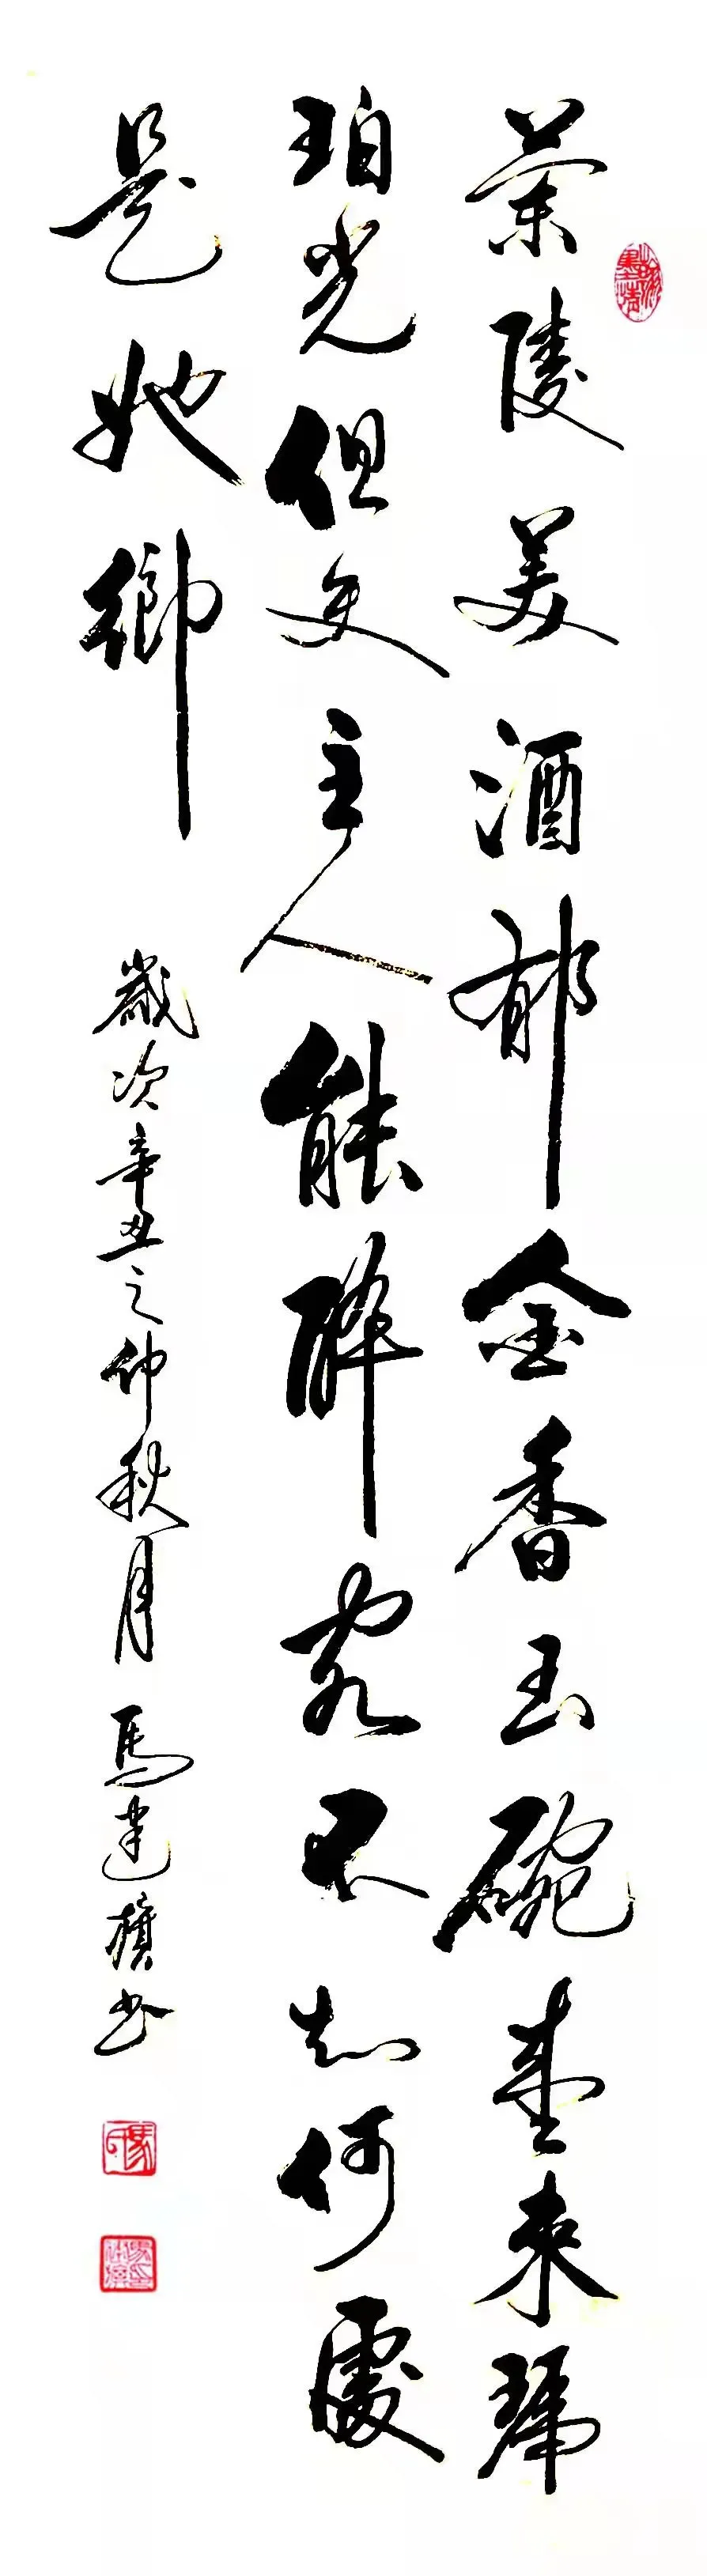 蘭陵美酒郁金香玉碗盛來琥
珀光但使主人能醉客不知何處
是她鄉
歲次辛丑之仲秋月 馬建書